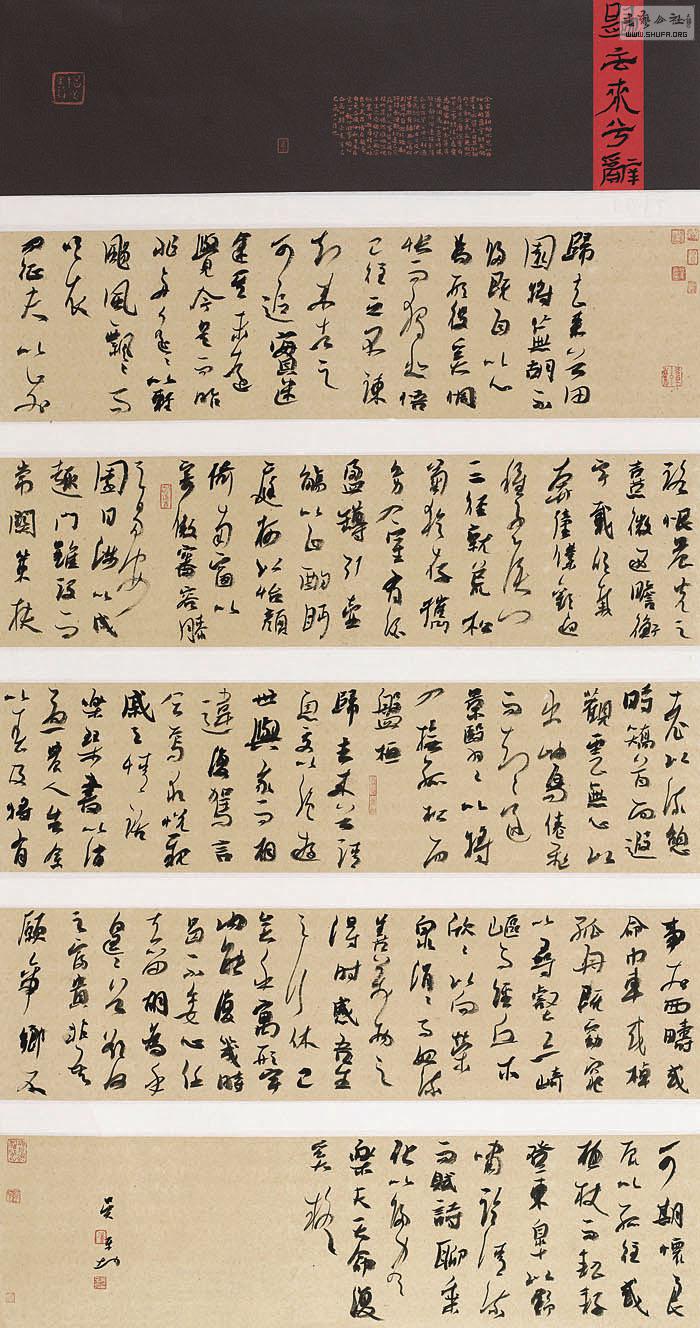 书艺公社
WWW.SHUFA.ORG
歸去來兮辭
歸去來兮田
園將蕪胡不
歸既自以心
為形役奚惆
悵而獨悲悟
已往之不諫
知來者之
可追實迷
途其未遠
覺今是而昨
非舟遙〻以輕
颺風飄〻而
吹衣
問征夫以前
路恨晨光之
熹微乃瞻衡
宇載欣載
奔僮僕歡迎
稚子候門
三徑就荒松
菊猶存攜
幼入室有酒
盈罇引壺
觴以自酌眄
庭柯以怡顏
倚南窗以
寄傲審容膝
之易安
園日涉以成
趣門雖設而
常關策扶
老以流憩
時矯首而遐
觀雲無心以
出岫鳥倦飛
而知還
景翳〻以將
入撫孤松而
盤桓
歸去來兮請
息交以絕遊
世與我而相
違復駕言
兮焉求悅親
戚之情話
樂琴書以消
憂農人告余
以春及將有
事於西疇或
命巾車或棹
孤舟既窈窕
以尋壑亦崎
嶇而經丘木
欣〻以向榮
泉涓〻而始流
善萬物之
得時感吾生
之行休已
矣乎寓形宇
內能復幾時
曷不委心任
去留胡為乎
遑〻兮欲何
之富貴非吾
願帝鄉不
可期懷良
辰以孤往或
植杖而耘耔
登東皋以舒
嘯臨清流
而賦詩聊乘
化以歸盡
樂夫天命復
奚疑